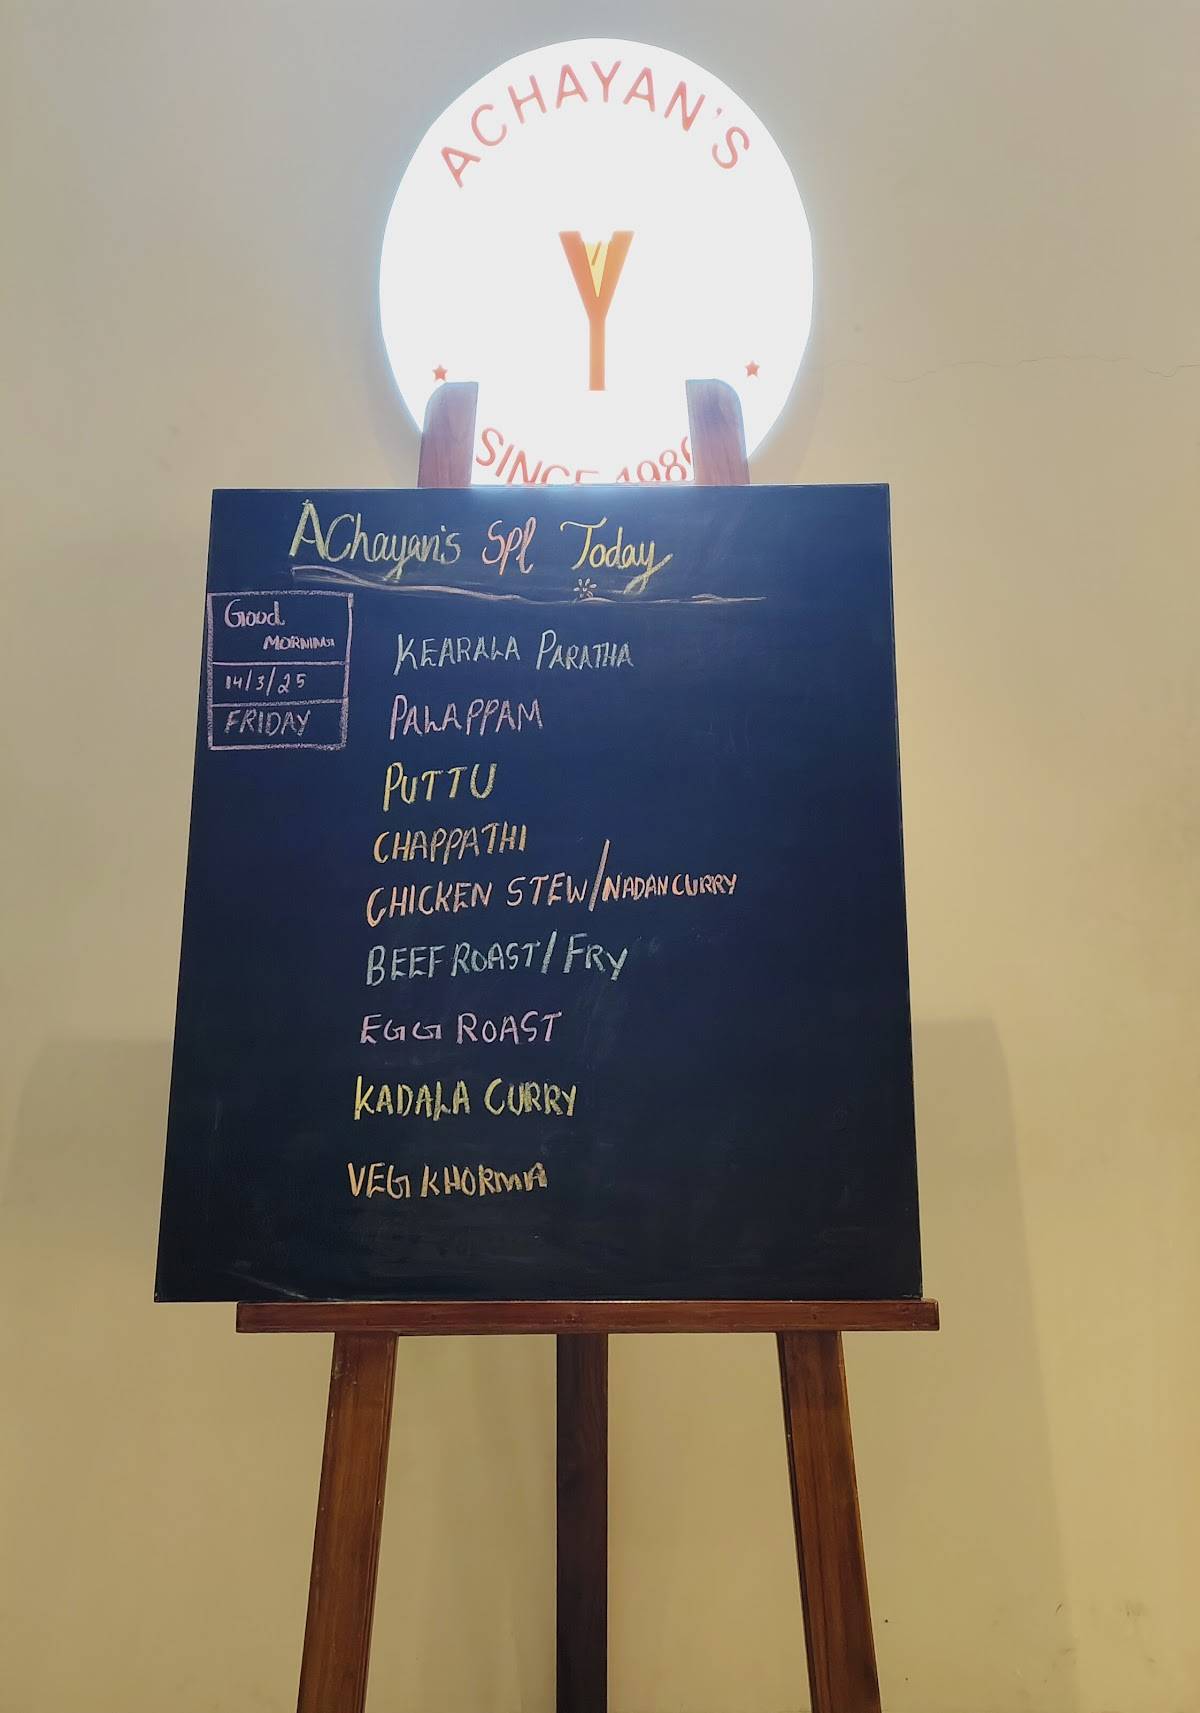 ACHAYAN'S
Y
SINCE 198
AChayan's Spl Today
Good
MORNING
14/3/25
FRIDAY
KEARALA PARATHA
PALAPPAM
PUTTU
CHAPPATHI
CHICKEN STEW/NADAN CURRY
BEEF ROAST/FRY
EGG ROAST
KADALA CURRY
VEG KHORMA